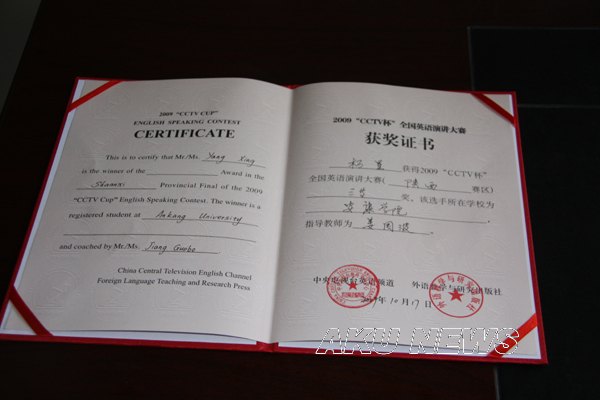 2009 "CCTV CUP"
ENGLISH SPEAKING CONTEST
CERTIFICATE
This is to certify that Mr./Ms. Yang Xing
is the winner of the Award in the
Shaanxi Provincial Final of the 2009
"CCTV Cup" English Speaking Contest. The winner is a
registered student at Ankang University
and coached by Mr./Ms. Jiang Guobo
China Central Television English Channel
Foreign Language Teaching and Research Press
2009 "CCTV杯" 全国英语演讲大赛
获奖证书
杨 获得2009 "CCTV杯"
全国英语演讲大赛( 陕西 赛区)
奖, 该选手所在学校为
安康学院
指导教师为 姜国波 。
中央电视台英语频道 外语教学与研究出版社
2009年10月17日
AKU NEWS